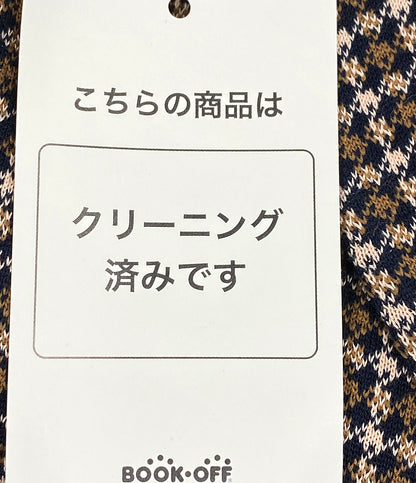 こちらの商品は
クリーニング
済みです
BOOK・OFF